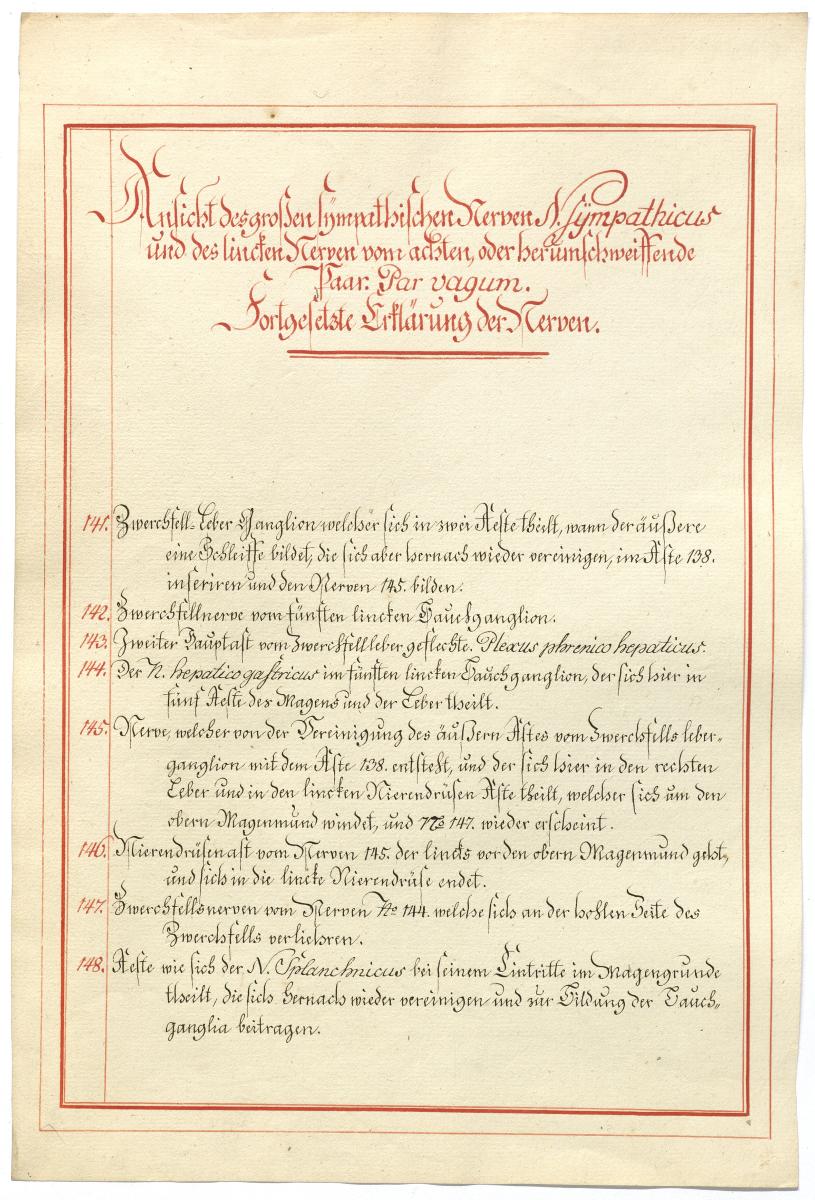 Ansicht des großen sÿmpathischen Nerven N. Sÿmpathicus
und des lincken Nerven vom achten, oder herumschweiffende
Paar. Par vagum.
Fortgesetzte Erklärung der Nerven.
141. Zwerchfell-Leber Ganglion welcher sich in zwei Aeste theilt, wann der äußere
eine Schleiffe bildet, die sich aber hernach wieder vereinigen, im Aste 138.
inseriren und den Nerven 145. bilden.
142. Zwerchfellnerve vom fünften lincken Bauchganglion.
143. Zweiter Hauptast vom Zwerchfellleber geflechte. Plexus phrenico hepaticus.
144. Der N. hepatico gastricus im fünften lincken Bauchganglion, der sich hier in
fünf Aeste des Magens und der Leber theilt.
145. Nerve, welcher von der Vereinigung des äußern Astes vom Zwerchfells leber-
ganglion mit dem Aste 138. entsteht, und der sich hier in den rechten
Leber und in den lincken Nierendrüsen Aste theilt, welcher sich um den
obern Magenmund windet, und No 147. wieder erscheint.
146. Nierendrüsenast vom Nerven 145. der lincks vor den obern Magenmund geht,
und sich in die lincke Nierendrüse endet.
147. Zwerchfellsnerven vom Nerven No 144. welche sich an der hohlen Seite des
Zwerchfells verliehren.
148. Aeste wie sich der N. Splanchnicus bei seinem Eintritte im Magengrunde
theilt, die sich hernach wieder vereinigen und zur Bildung der Bauch-
ganglia beitragen.